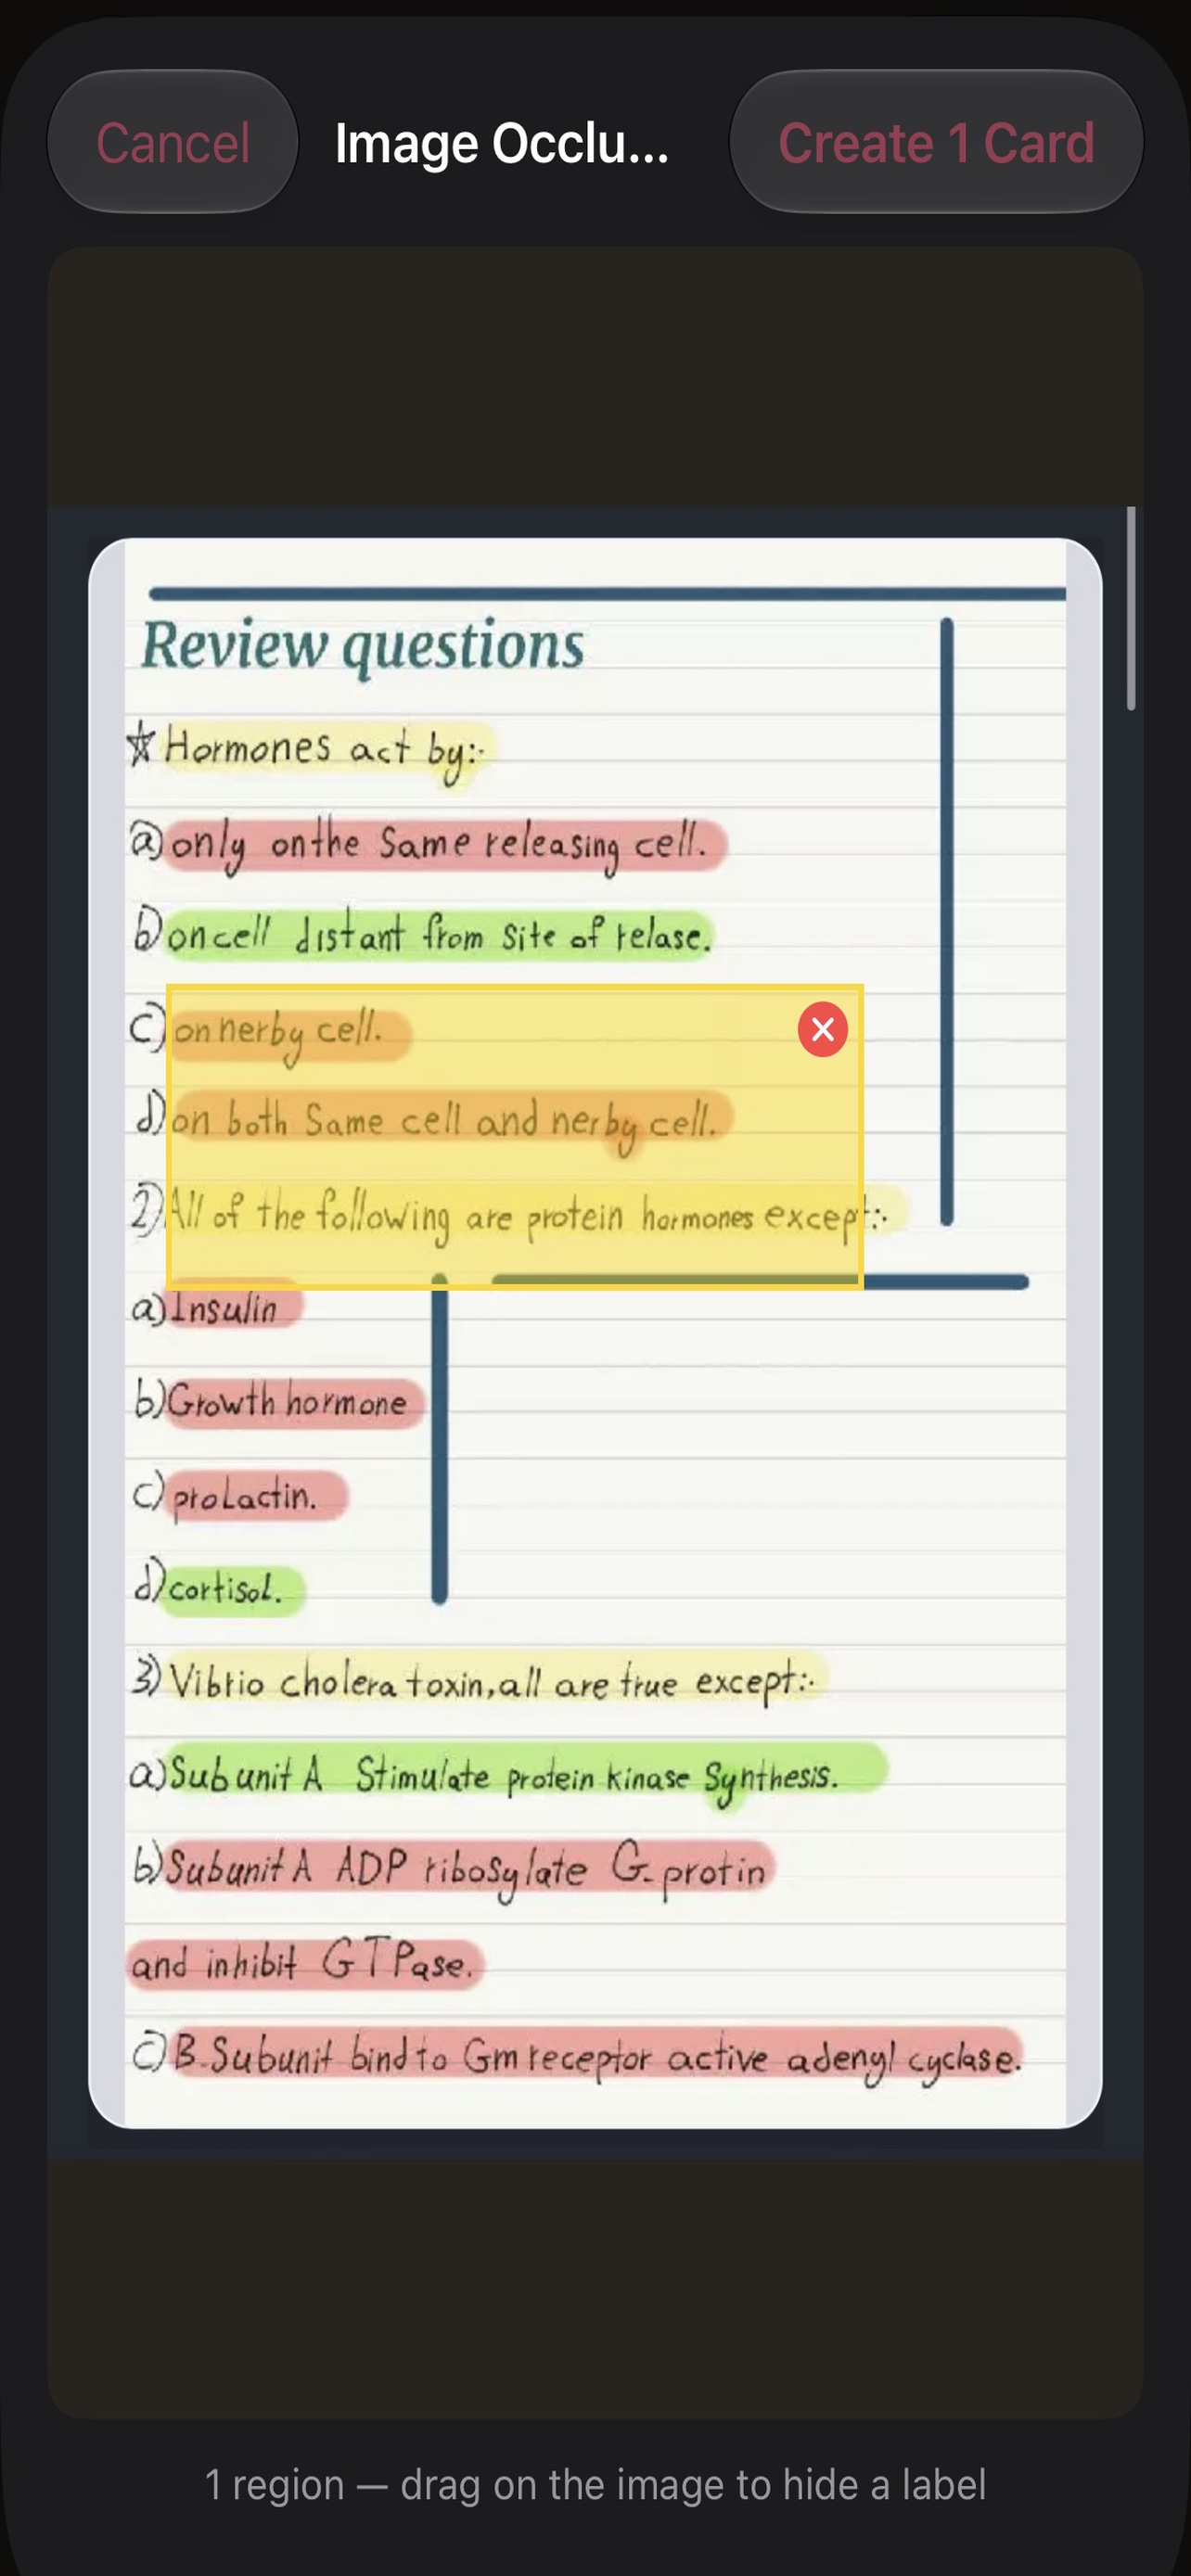 Cancel
Image Occlu...
Create 1 Card
Review questions
☆ Hormones act by:-
a) only on the Same releasing cell.
b) on cell distant from Site of relase.
c) on nerby cell.
d) on both Same cell and nerby cell.
2) All of the following are protein hormones except:-
a) Insulin
b) Growth hormone
c) proLactin.
d) cortisol.
3) Vibrio cholera toxin, all are true except:-
a) Subunit A Stimulate protein kinase Synthesis.
b) Subunit A ADP ribosylate G-protin
and inhibit GTPase.
c) B-Subunit bind to Gm receptor active adenyl cyclase.
1 region — drag on the image to hide a label